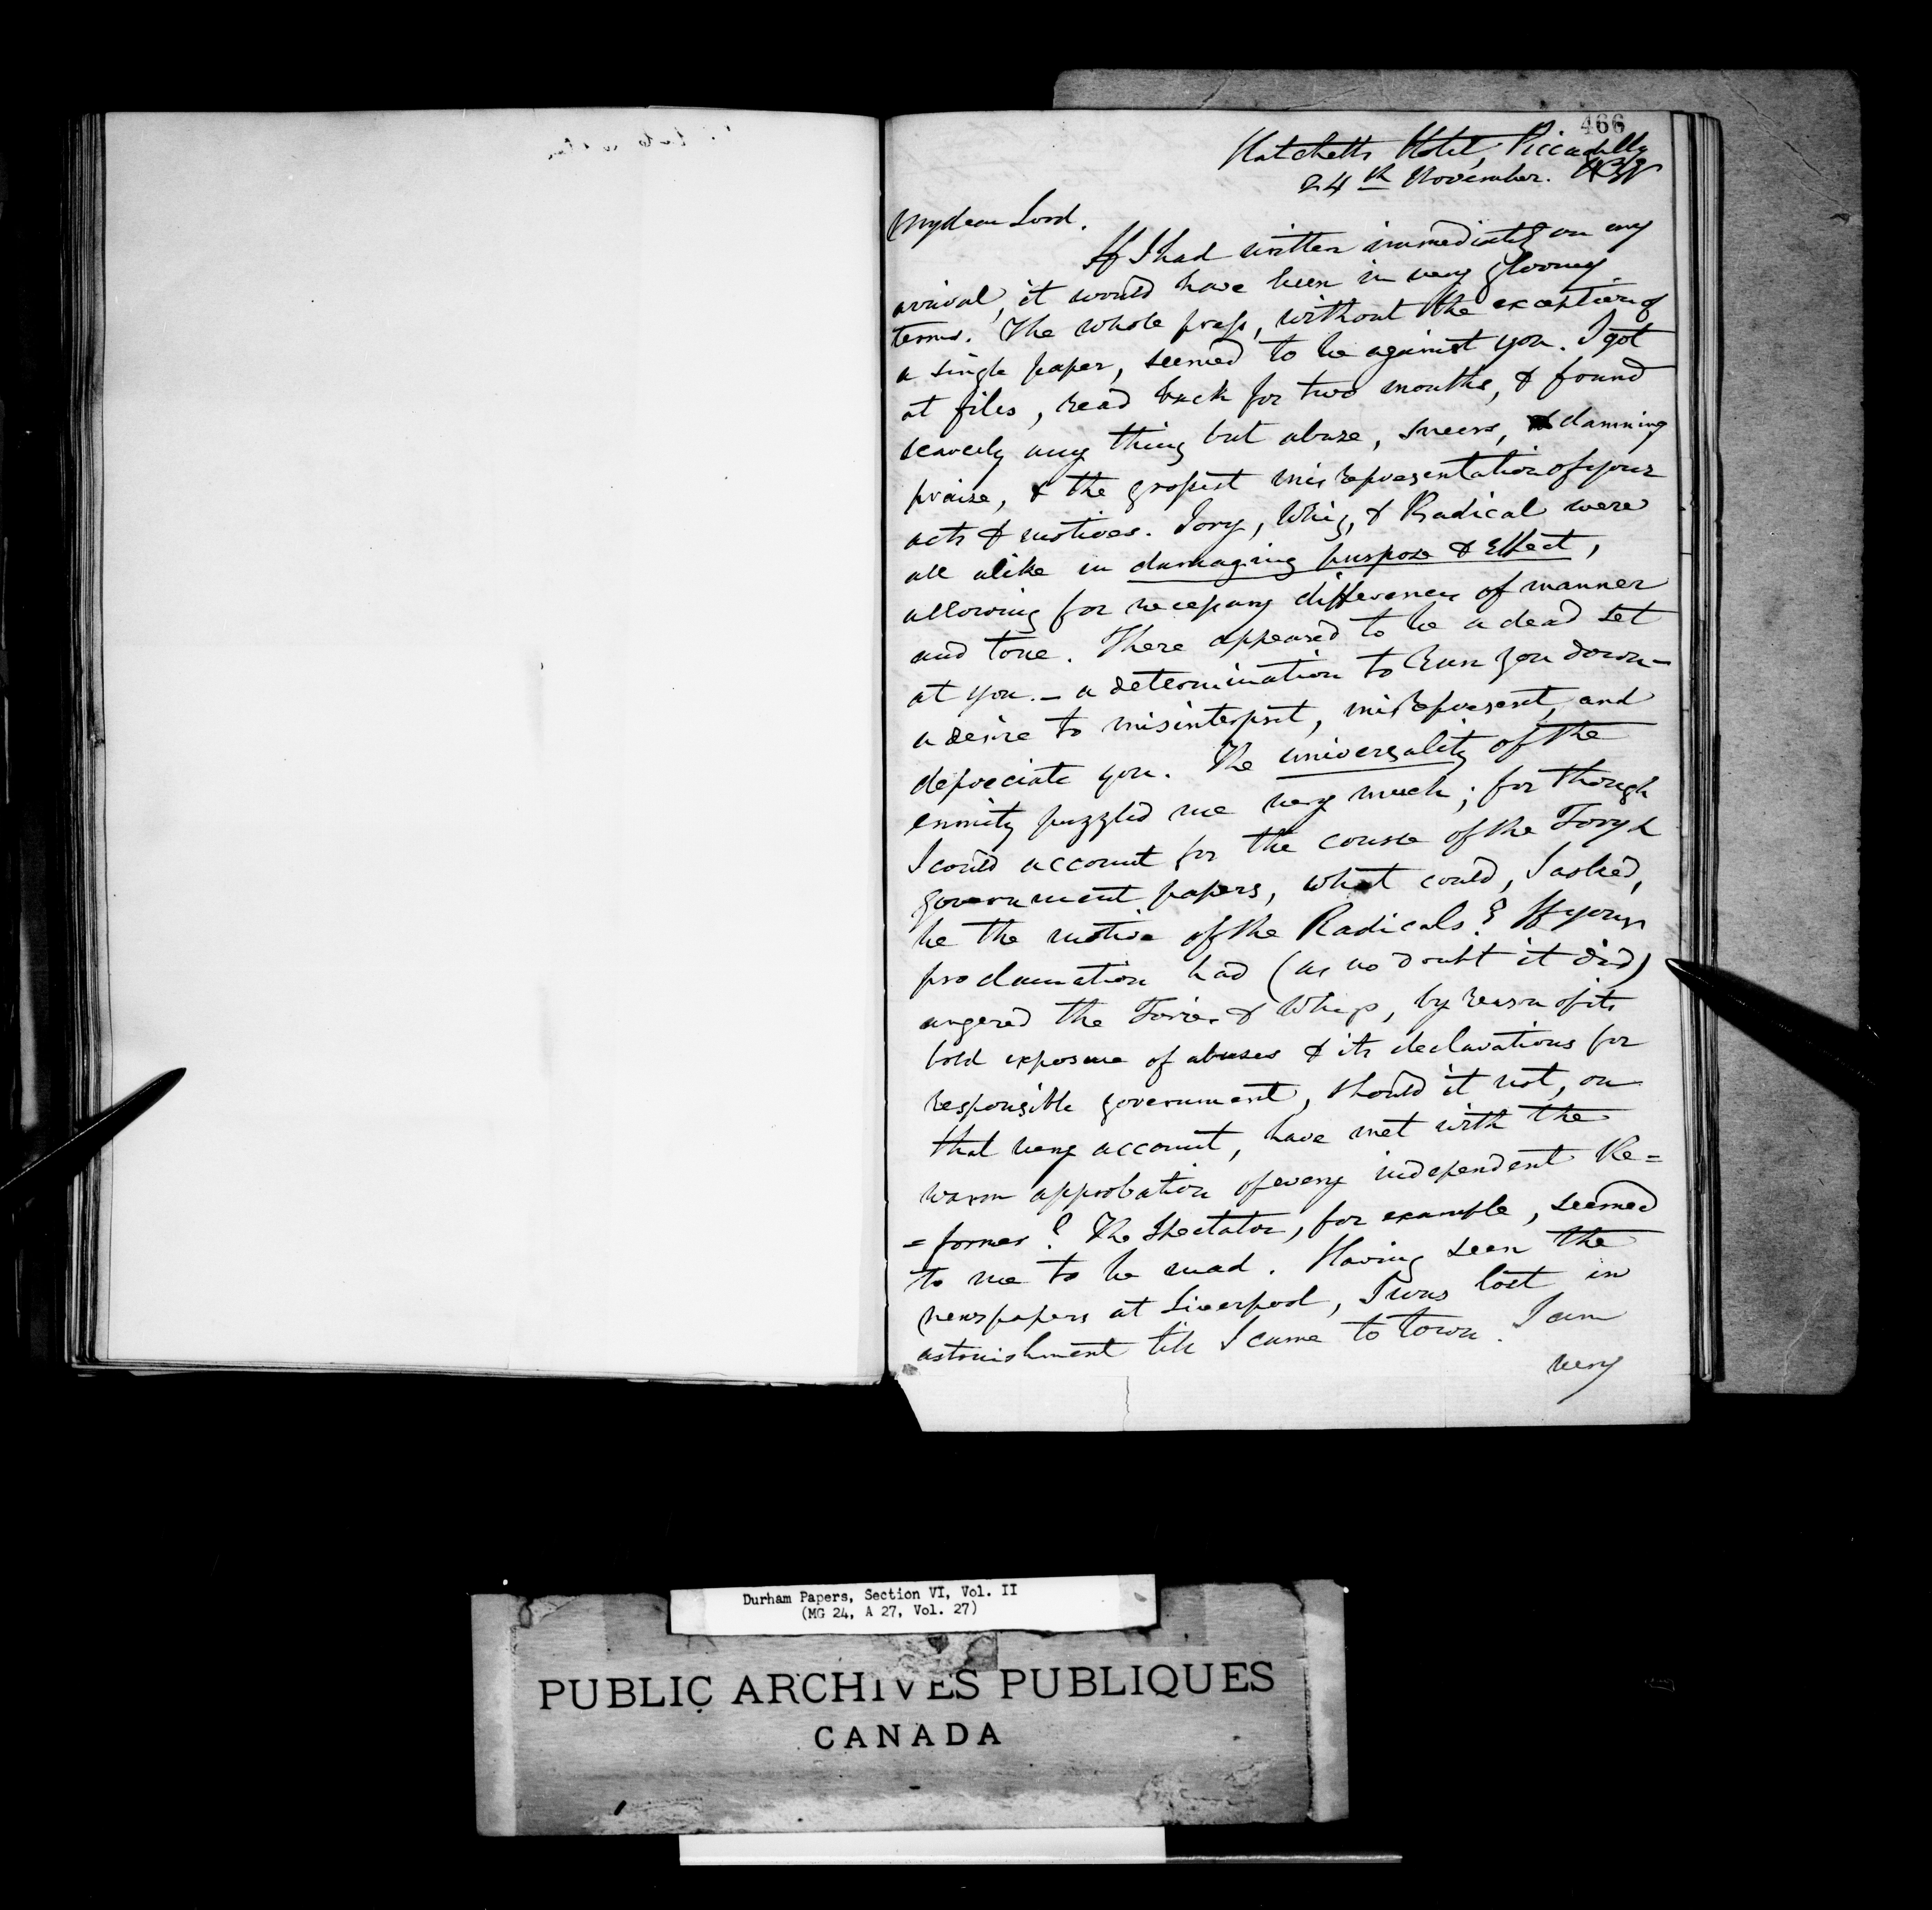 466
Hatchetts Hotel, Piccadilly
24th November. 1838
My dear Lord.
If I had written immediately on my
arrival, it would have been in very gloomy
terms. The whole press, without the exception of
a single paper, seemed to be against you. I got
at files, read back for two months, & found
scarcely any thing but abuse, sneers, damning
praise, & the grossest misrepresentation of your
acts & motives. Tory, Whig, & Radical were
all alike in damaging purpose & effect,
allowing for necessary differences of manner
and tone. There appeared to be a dead set
at you. — a determination to run you down —
a desire to misinterpret, misrepresent, and
depreciate you. The universality of the
enmity puzzled me very much; for though
I could account for the course of the Tory &
government papers, what could, I asked,
be the motive of the Radicals? If your
proclamation had (as no doubt it did)
angered the Tories & Whigs, by reason of its
bold exposure of abuses & its declarations for
responsible government, should it not, on
that very account, have met with the
warm approbation of every independent Re=
=former? The Spectator, for example, seemed
to me to be mad. Having seen the
newspapers at Liverpool, I was lost in
astonishment till I came to town. I am
very
Durham Papers, Section VI, Vol. II
(MG 24, A 27, Vol. 27)
PUBLIC ARCHIVES PUBLIQUES
CANADA